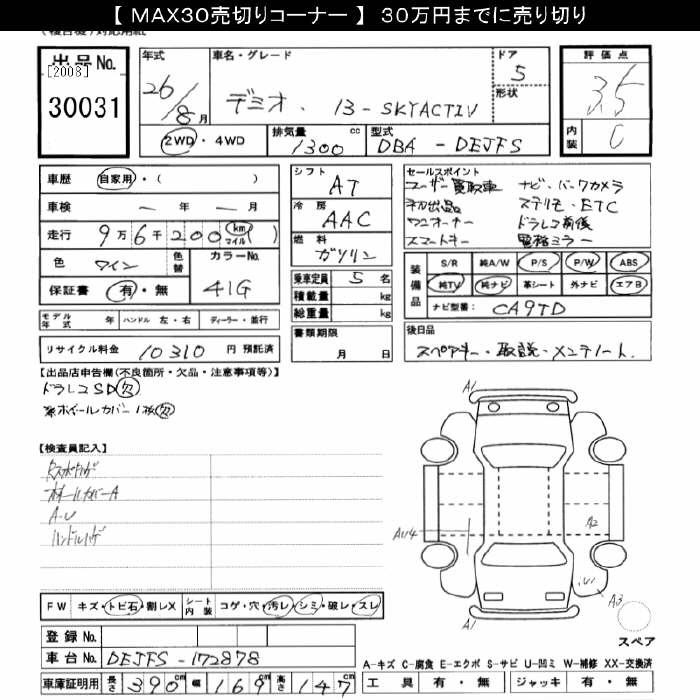 【 MAX30売切りコーナー 】 30万円までに売り切り
出品No.
[2008]
30031
年式
26/8月
車名・グレード
デミオ 13-SKYACTIV
ドア
5
形状
評価点
3.5
内装
C
2WD・4WD
排気量
1300 cc
型式
DBA - DEJFS
車歴 自家用・( )
車検 ー 年 ー 月
走行 9万6千200 (km マイル)
色 ワイン
色替
カラーNo.
41G
保証書 有・無
モデル年式 年 ハンドル 左・右 ディーラー・並行
リサイクル料金 10310 円 預託済
シフト
AT
冷房
AAC
燃料
ガソリン
乗車定員 5 名
積載量 kg
総重量 kg
書類期限
月 日
セールスポイント
ユーザー買取車 ナビ・バックカメラ
初出品 ステリモ・ETC
ワンオーナー ドラレコ前後
スマートキー 電格ミラー
装備品
S/R 純A/W P/S P/W ABS
純TV 純ナビ 革シート 外ナビ エアB
ナビ型番: CA9TD
後日品
スペアキー・取説・メンテノート.
【出品店申告欄(不良箇所・欠品・注意事項等)】
ドラレコSD欠
※ホイールカバー1枚欠
【検査員記入】
ホイールカバーA
A・U
A1
AU4
A2
A3
A1
スペア
FW キズ・トビ石・割レX シート内装 コゲ・穴・汚レ・シミ・破レ・スレ
登録No.
車台No. DEJFS-172878
車庫証明用 長さ 390cm 幅 169cm 高さ 147cm
A-キズ C-腐食 E-エクボ S-サビ U-凹ミ W-補修 XX-交換済
工具 有・無 ジャッキ 有・無